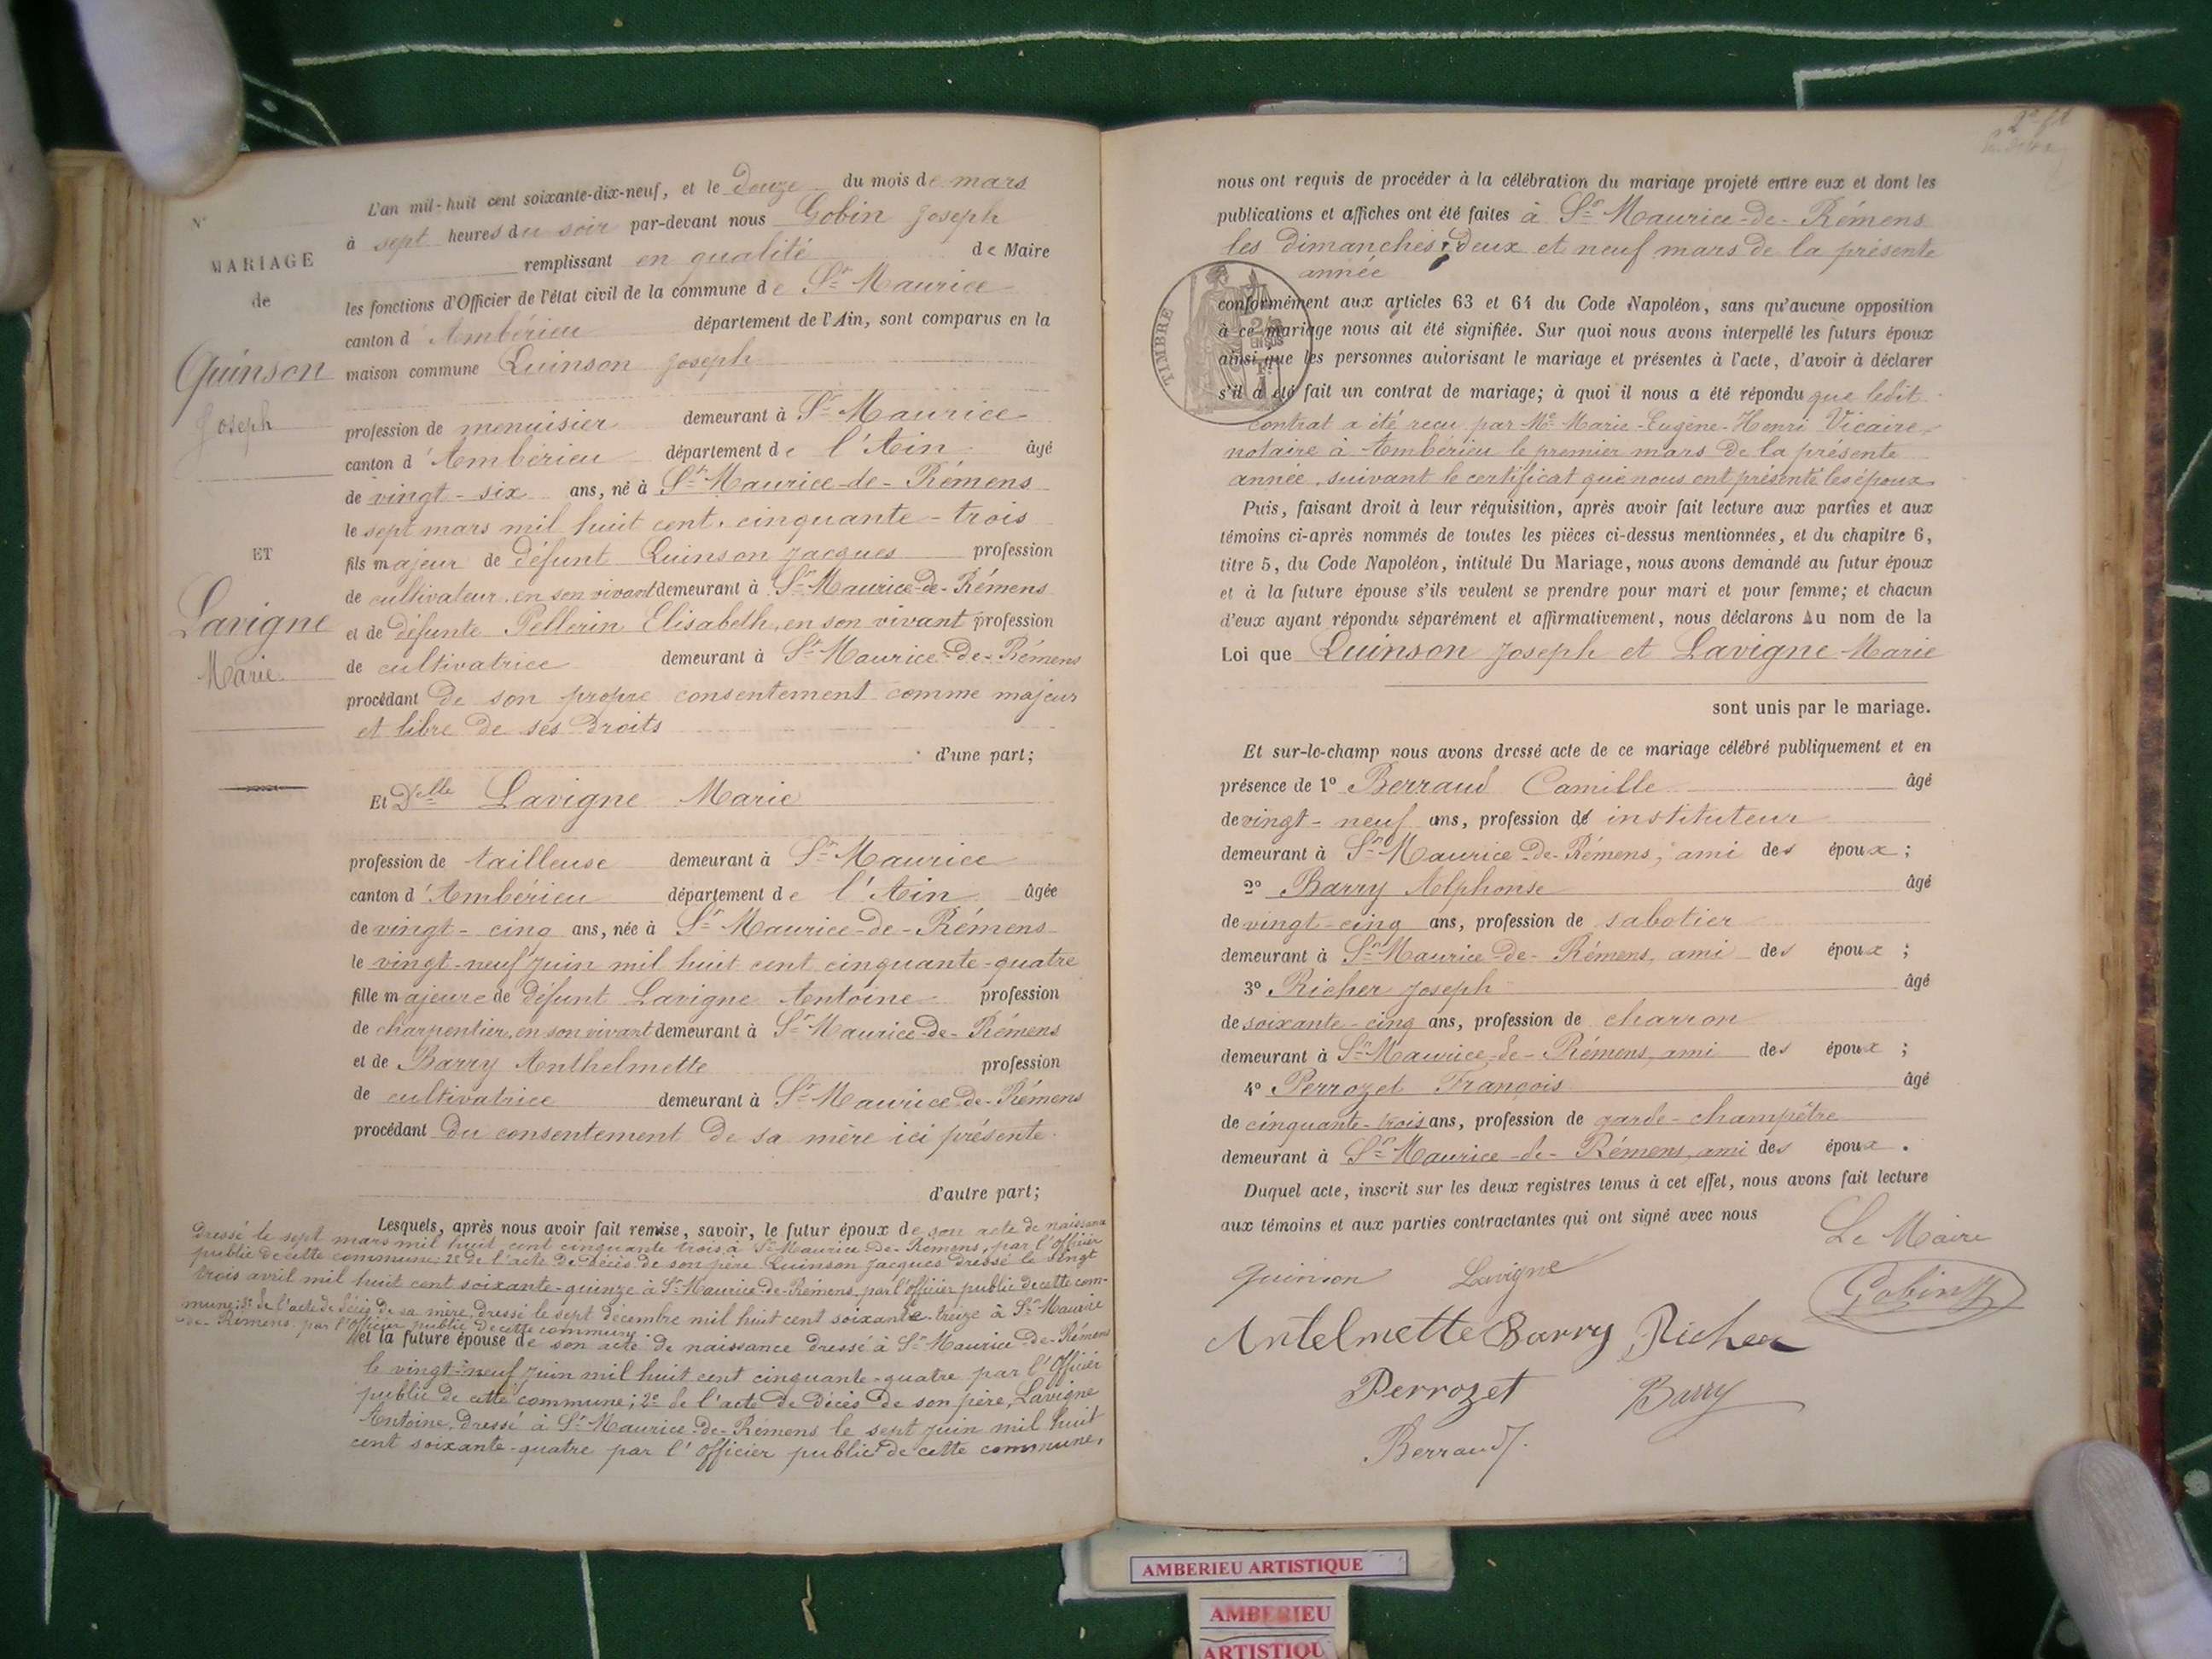 N°
MARIAGE
de
Quinson
Joseph
ET
Lavigne
Marie
L'an mil-huit cent soixante-dix-neuf, et le douze du mois de mars
à sept heures du soir par-devant nous Gobin Joseph
remplissant en qualité de Maire
les fonctions d'Officier de l'état civil de la commune de St Maurice
canton d'Ambérieu département de l'Ain, sont comparus en la
maison commune Quinson Joseph
profession de menuisier demeurant à St Maurice
canton d'Ambérieu département de l'Ain âgé
de vingt-six ans, né à St Maurice-de-Rémens
le sept mars mil huit cent cinquante-trois
fils majeur de défunt Quinson Jacques profession
de cultivateur, en son vivant demeurant à St Maurice-de-Rémens
et de défunte Pellerin Elisabeth, en son vivant profession
de cultivatrice demeurant à St Maurice-de-Rémens
procédant de son propre consentement comme majeur
et libre de ses droits
d'une part;
Et Delle Lavigne Marie
profession de tailleuse demeurant à St Maurice
canton d'Ambérieu département de l'Ain âgée
de vingt-cinq ans, née à St Maurice-de-Rémens
le vingt-neuf juin mil huit cent cinquante-quatre
fille majeure de défunt Lavigne Antoine profession
de charpentier, en son vivant demeurant à St Maurice-de-Rémens
et de Barry Anthelmette profession
de cultivatrice demeurant à St Maurice-de-Rémens
procédant du consentement de sa mère ici présente.
d'autre part;
Lesquels, après nous avoir fait remise, savoir, le futur époux de son acte de naissance
dressé le sept mars mil huit cent cinquante trois à St Maurice-de-Rémens, par l'officier
public de cette commune; 2° de l'acte de décès de son père Quinson Jacques dressé le vingt
trois avril mil huit cent soixante-quinze à St Maurice-de-Rémens, par l'officier public de cette com-
mune; 3° de l'acte de décès de sa mère, dressé le sept décembre mil huit cent soixante-treize à St Maurice
-de-Rémens par l'Officier public de cette commune;
et la future épouse de son acte de naissance dressé à St Maurice-de-Rémens
le vingt-neuf juin mil huit cent cinquante-quatre par l'Officier
public de cette commune; 2° de l'acte de décès de son père, Lavigne
Antoine, dressé à St Maurice-de-Rémens le sept juin mil huit
cent soixante-quatre par l'Officier public de cette commune,
nous ont requis de procéder à la célébration du mariage projeté entre eux et dont les
publications et affiches ont été faites à St Maurice-de-Rémens
les dimanches deux et neuf mars de la présente
année
TIMBRE
conformément aux articles 63 et 64 du Code Napoléon, sans qu'aucune opposition
à ce mariage nous ait été signifiée. Sur quoi nous avons interpellé les futurs époux
ainsi que les personnes autorisant le mariage et présentes à l'acte, d'avoir à déclarer
s'il a été fait un contrat de mariage; à quoi il nous a été répondu que ledit
contrat a été reçu par Me Marie-Eugène-Henri Vicaire,
notaire à Ambérieu le premier mars de la présente
année, suivant le certificat que nous ont présenté les époux
Puis, faisant droit à leur réquisition, après avoir fait lecture aux parties et aux
témoins ci-après nommés de toutes les pièces ci-dessus mentionnées, et du chapitre 6,
titre 5, du Code Napoléon, intitulé Du Mariage, nous avons demandé au futur époux
et à la future épouse s'ils veulent se prendre pour mari et pour femme; et chacun
d'eux ayant répondu séparément et affirmativement, nous déclarons Au nom de la
Loi que Quinson Joseph et Lavigne Marie
sont unis par le mariage.
Et sur-le-champ nous avons dressé acte de ce mariage célébré publiquement et en
présence de 1° Berraud Camille âgé
de vingt-neuf ans, profession de instituteur
demeurant à St Maurice-de-Rémens, ami des époux;
2° Barry Alphonse âgé
de vingt-cinq ans, profession de sabotier
demeurant à St Maurice-de-Rémens, ami des époux;
3° Richer Joseph âgé
de soixante-cinq ans, profession de charron
demeurant à St Maurice-de-Rémens, ami des époux;
4° Perrozet François âgé
de cinquante-trois ans, profession de garde-champêtre
demeurant à St Maurice-de-Rémens, ami des époux.
Duquel acte, inscrit sur les deux registres tenus à cet effet, nous avons fait lecture
aux témoins et aux parties contractantes qui ont signé avec nous
Le Maire
quinson Lavigne Gobin
Antelmette Barry Richer
Perrozet Barry
Berraud
AMBERIEU ARTISTIQUE
AMBERIEU
ARTISTIQU